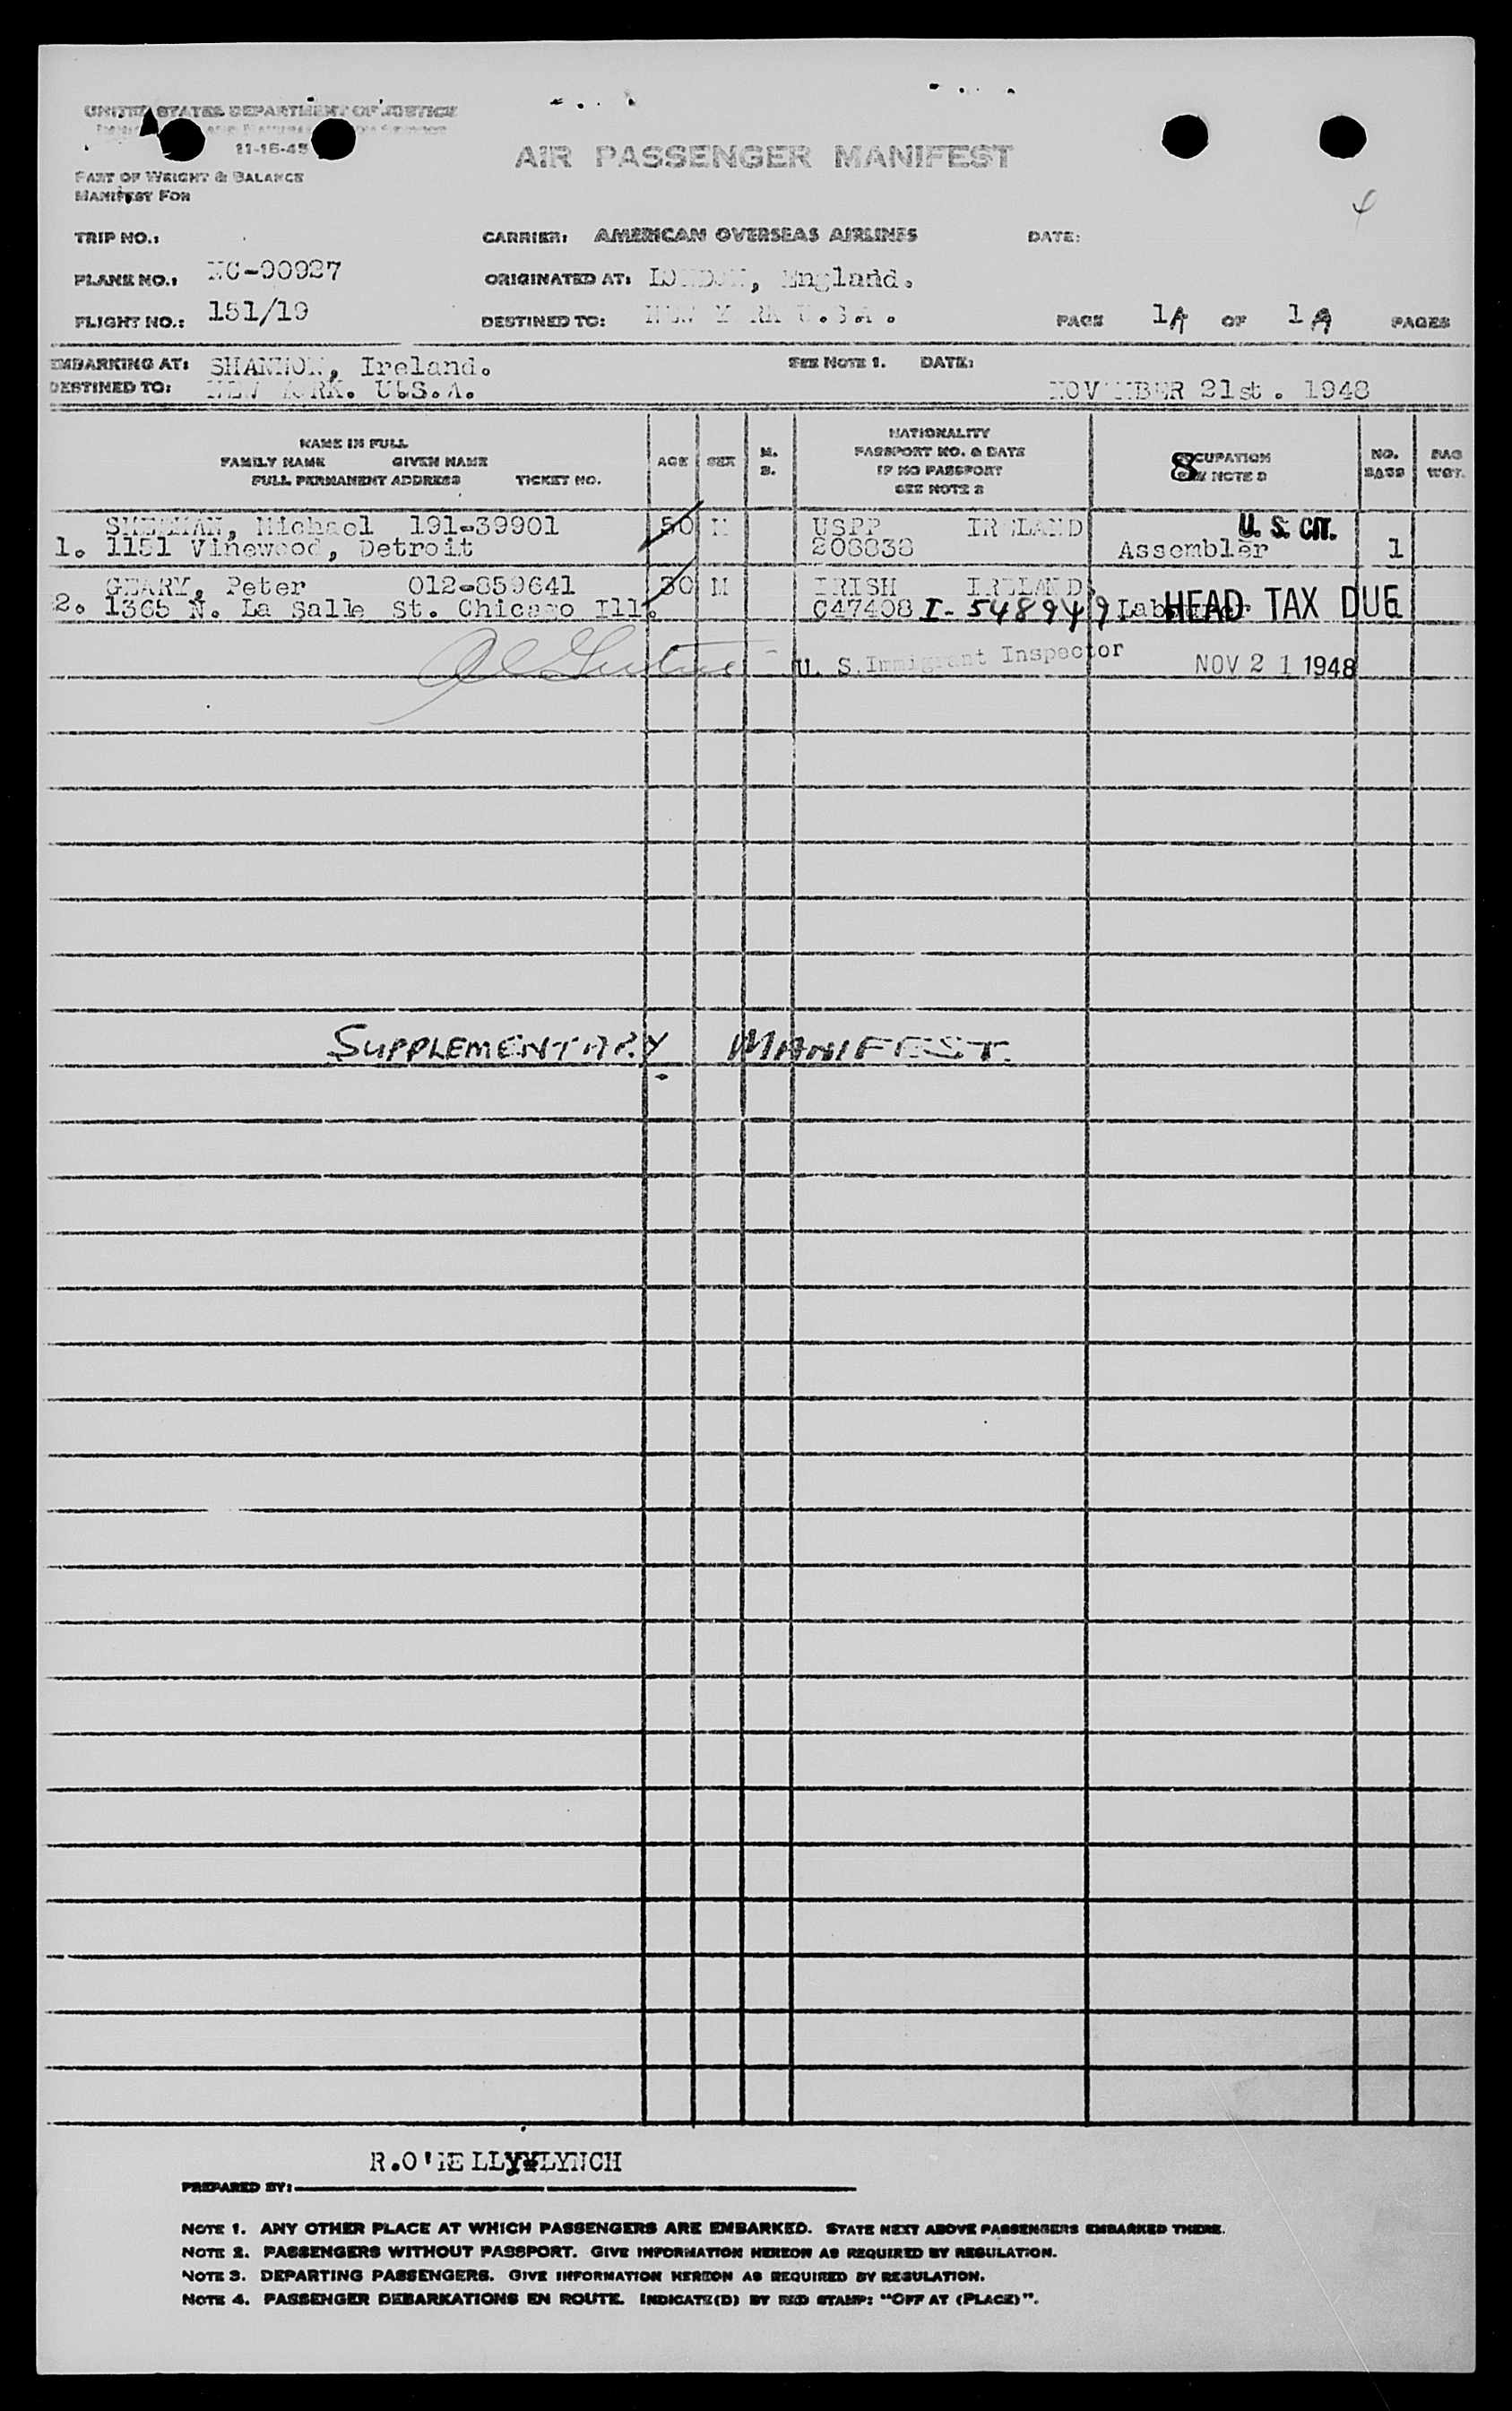 UNITED STATES DEPARTMENT OF JUSTICE
11-15-45
AIR PASSENGER MANIFEST
PART OF WEIGHT & BALANCE
MANIFEST FOR
4
TRIP NO.: CARRIER: AMERICAN OVERSEAS AIRLINES DATE:
PLANE NO.: NC-90927 ORIGINATED AT: LONDON, England.
FLIGHT NO.: 151/19 DESTINED TO: NEW YORK U.S.A. PAGE 1A OF 1A PAGES
EMBARKING AT: SHANNON, Ireland. SEE NOTE 1. DATE:
DESTINED TO: NEW YORK. U.S.A. NOVEMBER 21st. 1948
NAME IN FULL
FAMILY NAME GIVEN NAME
FULL PERMANENT ADDRESS TICKET NO.
AGE SEX M. S.
NATIONALITY
PASSPORT NO. & DATE
IF NO PASSPORT
SEE NOTE 2
8
OCCUPATION
SEE NOTE 3
NO. BAGS
BAG WGT.
Michael 191-39901 50 M USPP IRELAND U. S. CIT.
1. 1151 Vinewood, Detroit 208838 Assembler 1
GEARY, Peter 012-859641 30 M IRISH IRELAND
2. 1365 N. La Salle St. Chicago Ill. C47408 I-548949 Labourer HEAD TAX DUE
U. S. Immigrant Inspector NOV 21 1948
SUPPLEMENTARY MANIFEST.
PREPARED BY: LYNCH
NOTE 1. ANY OTHER PLACE AT WHICH PASSENGERS ARE EMBARKED. STATE NEXT ABOVE PASSENGERS EMBARKED THERE.
NOTE 2. PASSENGERS WITHOUT PASSPORT. GIVE INFORMATION HEREON AS REQUIRED BY REGULATION.
NOTE 3. DEPARTING PASSENGERS. GIVE INFORMATION HEREON AS REQUIRED BY REGULATION.
NOTE 4. PASSENGER DEBARKATIONS EN ROUTE. INDICATE(D) BY RED STAMP: "OFF AT (PLACE)".